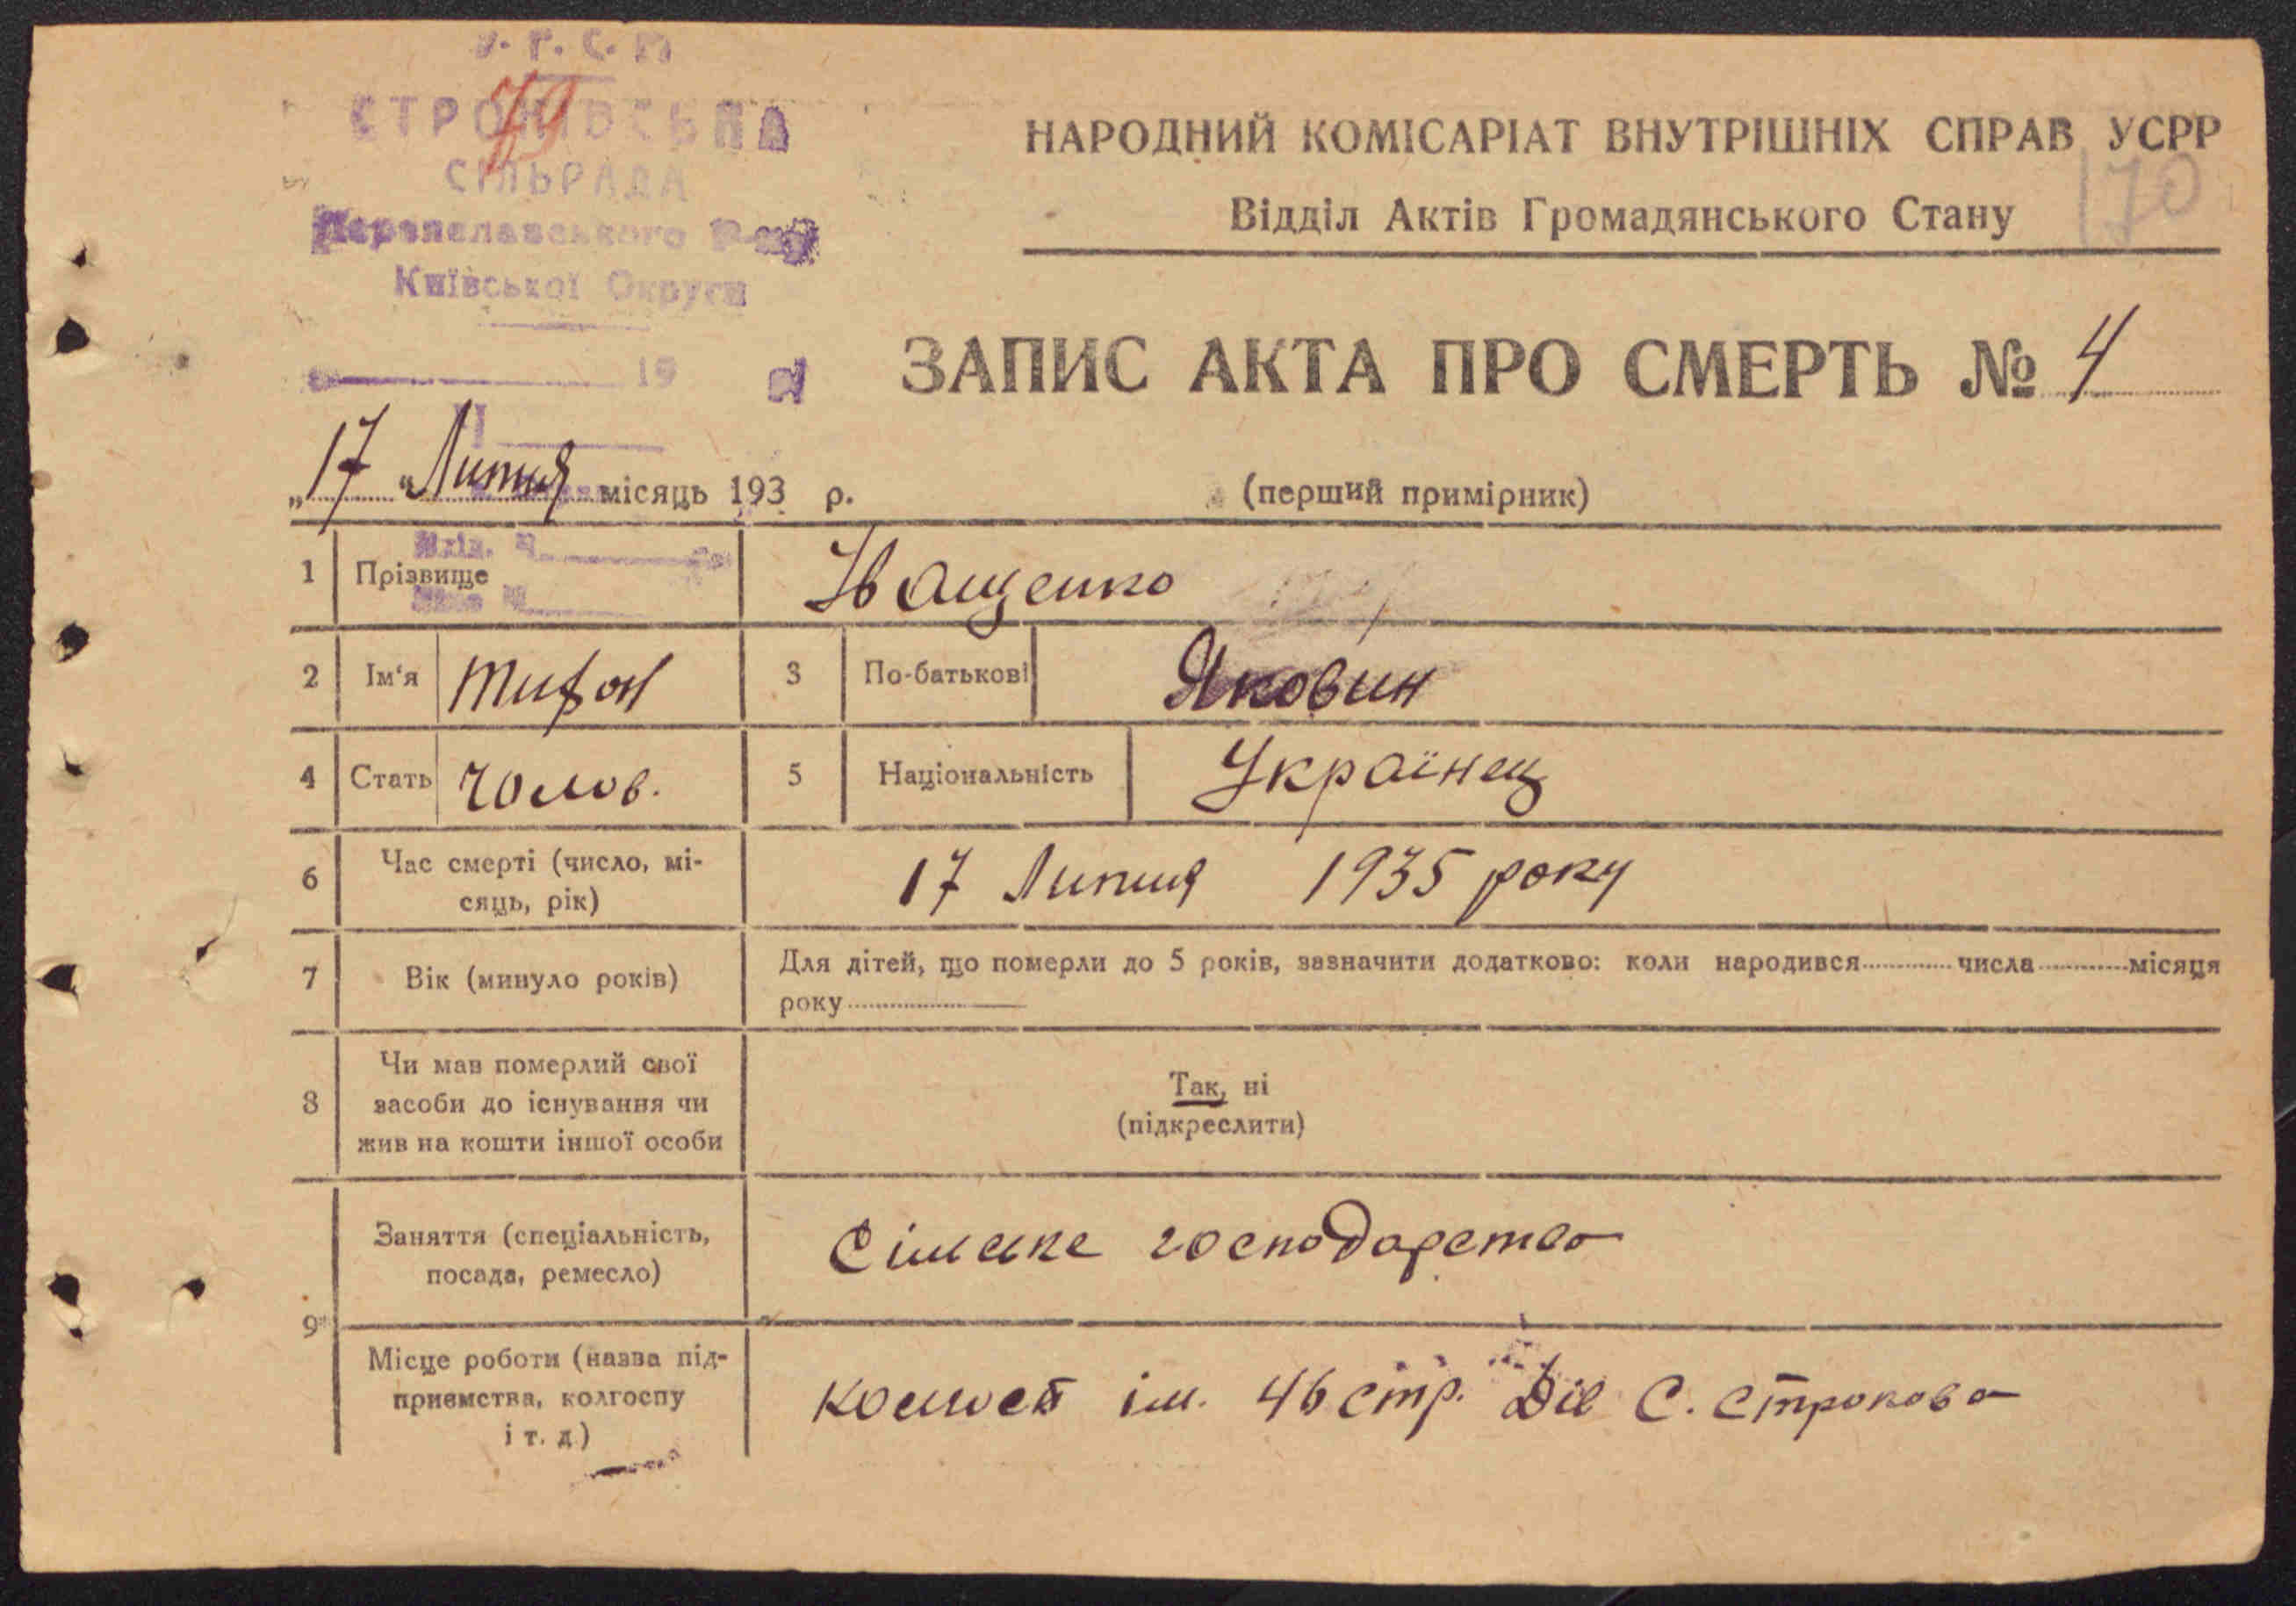 У. Р. С. Р.
79
СТРОКІВСЬКА
СІЛЬРАДА
Переяславського Р-ну
Київської Округи
19
НАРОДНИЙ КОМІСАРІАТ ВНУТРІШНІХ СПРАВ УСРР
170
Відділ Актів Громадянського Стану
ЗАПИС АКТА ПРО СМЕРТЬ № 4
„17“ Липня місяць 193 р.
(перший примірник)
1 Прізвище Іващенко
2 Ім'я 3 По-батькові Яковин
4 Стать Чолов. 5 Національність Українец
6 Час смерті (число, мі-
сяць, рік)
17 Липня 1935 року
7 Вік (минуло років)
Для дітей, що померли до 5 років, зазначити додатково: коли народився числа місяця
року
8 Чи мав померлий свої
засоби до існування чи
жив на кошти іншої особи
Так, ні
(підкреслити)
9
Заняття (спеціальність,
посада, ремесло)
Сільське господарство
Місце роботи (назва під-
приємства, колгоспу
і т. д.)
ім. 46 стр. Див С. Строкова